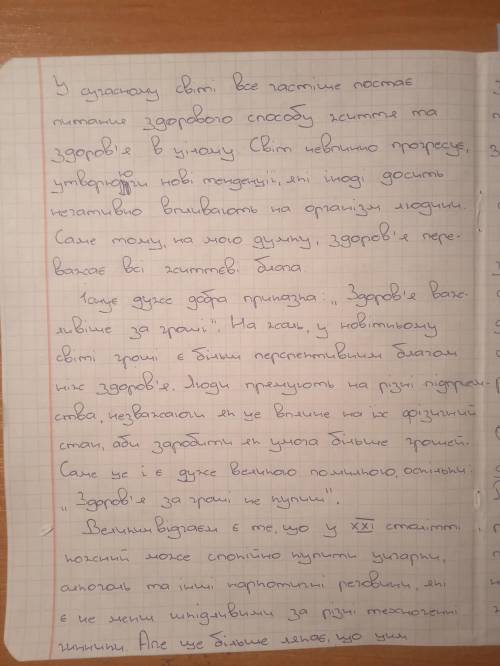 У сучасному світі все частіше постає
питання здорового способу життя та
здоров'я в цілому. Світ невпинно прогресує,
утворюючи нові тенденції, які іноді досить
негативно впливають на організм людини.
Саме тому, на мою думку, здоров'я пере-
важає всі життєві блага.
Існує дуже добра приказка: „Здоров'я важ-
ливіше за гроші". На жаль, у новітньому
світі гроші є більш перспективним благом
ніж здоров'я. Люди прямують на різні підприєм-
ства, незважаючи як це вплине на їх фізичний
стан, аби заробити як умога більше грошей.
Саме це і є дуже великою помилкою, оскільки:
„Здоров'я за гроші не купиш".
Великим відчаєм є те, що у XXI столітті
кожний може спокійно купити цигарки,
алкоголь та інші наркотичні речовини, які
є не менш шкідливими за різні техногенні
чинники. Але ще більше лякає, що цим